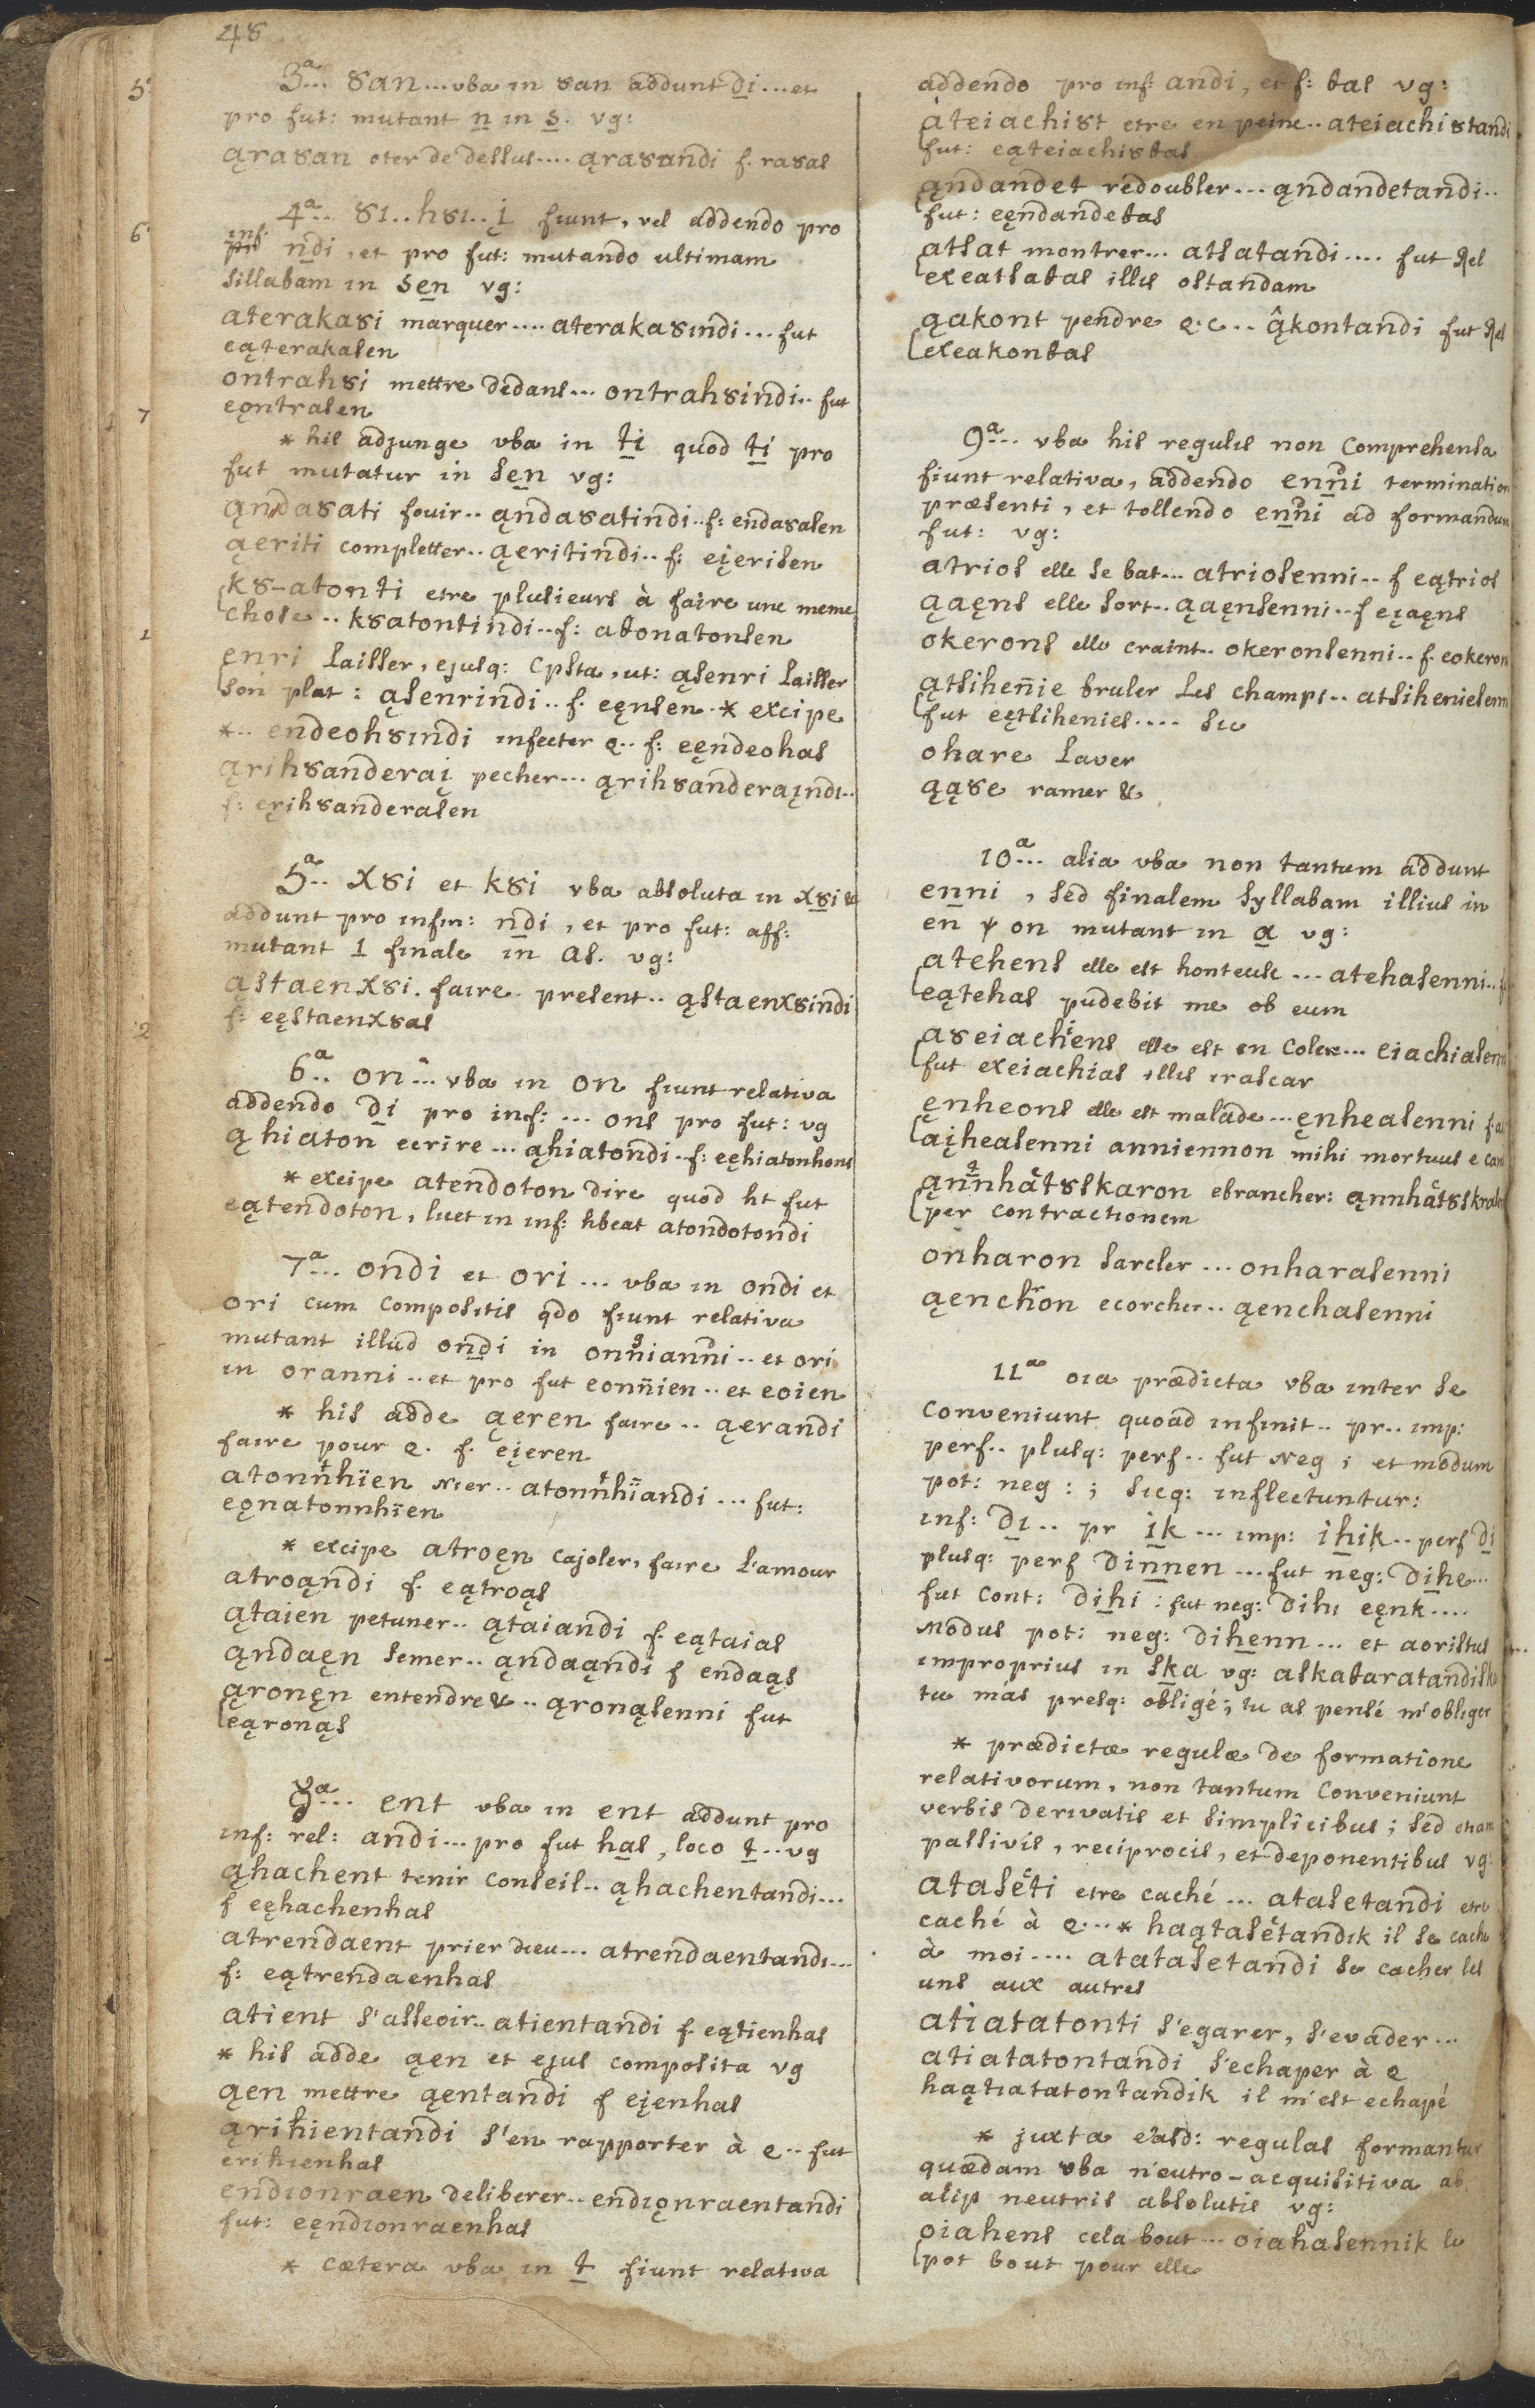 48
3a... 8an... vba in 8an addunt di... et
pro fut: mutant n in s. vg:
ąra8an oter de dessus.... ąra8andi f. ra8as
4a.. 8i.. h8i.. į fiunt, vel addendo pro
inf: ndi, et pro fut: mutando ultimam
sillabam in sen vg:
ateraka8i marquer.... ateraka8indi... fut
eąterakasen
ontrah8i mettre dedans... ontrah8indi.. fut
eǫntrasen
* his adjunge vba in ti quod ti pro
fut mutatur in sen vg:
ąndasati fouir.. ąndasatindi.. f: endasasen
ąeriti completter.. ąeritindi.. f: eįerisen
k8-atonti etre plusieurs à faire une meme
chose.. k8atontindi.. f: atonatonsen
enri laisser, ejusq: Cpsta, ut: ąsenri laisser
son plat: ąsenrindi.. f. eęnsen.. * excipe
*.. endeoh8indi infecter q.. f: eęndeohas
ąrih8anderaį pecher... ąrih8anderaįndi..
f: erih8anderasen
5a.. x8i et k8i vba absoluta in x8i &
addunt pro infin: ndi, et pro fut: aff:
mutant i finale in as. vg:
ąstaenx8i. faire present.. ąstaenx8indi
f: eęstaenx8as
6a.. on... vba in on fiunt relativa
addendo di pro inf:... ons pro fut: vg
ąhiaton ecrire... ąhiatondi.. f: eęhiatonhons
* excipe atendoton dire quod ht fut
eątendoton, licet in inf: hbeat atondotondi
7a... ondi et ori... vba in ondi et
ori cum compositis qdo fiunt relativa
mutant illud ondi in onnianni.. et ori
in oranni.. et pro fut eonnien.. et eoien
* his adde ąeren faire.. ąerandi
faire pour q. f. eįeren
atonnhïen nier.. atonnhïandi... fut:
eǫnatonnhïen
* excipe atroęn cajoler, faire l'amour
atroąndi f. eątroąs
ątaien petuner.. ątaiandi f. eątaias
ąndaęn semer.. ąndaąndi f endaąs
ąronęn entendre &.. ąronąsenni fut
eąronąs
8a... ent vba in ent addunt pro
inf: rel: andi... pro fut has, loco t.. vg
ąhachent tenir conseil.. ąhachentandi...
f eęhachenhas
atrendaent prier dieu... atrendaentandi...
f: eątrendaenhas
atient s'asseoir.. atientandi f. eątienhas
* his adde ąen et ejus composita vg
ąen mettre ąentandi f eįenhas
ąrihientandi s'en rapporter à q.. fut
erihienhas
endionraen deliberer.. endiǫnraentandi
fut: eęndionraenhas
* cætera vba in t fiunt relativa
addendo pro inf: andi, et f: tas vg:
ateiachist etre en peine.. ateiachistandi
fut: eąteiachistas
ąndandet redoubler... ąndandetandi..
fut: eęndandetas
atsat montrer... atsatandi.... fut Rel
exeatsatas illis ostandam
ąakont pendre q.c... âkontandi fut Rel
exeakontas
9a... vba his regulis non Comprehensa
fiunt relativa, addendo enni termination
præsenti, et tollendo enni ad formandum
fut: vg:
atrios elle se bat... atriosenni.. f eątrios
ąaęns elle sort.. ąaęnsenni.. f eįaęns
okerons elle craint.. okeronsenni.. f. eokeron
ątsihenie bruler les champs.. atsiheniesenn
fut eętsihenies.... sic
ohare laver
ąą8e ramer &
10a... alia vba non tantum addunt
enni, sed finalem syllabam illius in
en & on mutant in a vg:
atehens elle est honteuse... atehasenni..
eątehas pudebit me ob eum
a8eiachiens elle est en Colere... eiachiasenni
fut exeiachias illis irascar
ęnheons elle est malade... ęnheasenni f.
aįheasenni anniennon mihi mortuus e can
ąnnhatskaron ebrancher:
per contractionem
onharon sarcler... onharasenni
ąenchron ecorcher.. ąenchasenni
11a oia prædicta vba inter se
conveniunt quoad infinit.. pr.. imp:
perf.. plusq: perf.. fut neg; et modum
pot: neg:; sicq: inflectuntur:
inf: di.. pr ik... imp: ihik.. perf di
plusq: perf dinnen... fut neg: dihe...
fut cont: dihi: fut neg: dihi eęnk....
modus pot: neg: dihenn... et aoristus
improprius in ska vg: askataratandisk
tu m'as presq: obligé; tu as pensé m'obliger
* prædictæ regulæ de formatione
relativorum, non tantum Conveniunt
verbis derivatis et simplicibus; sed etiam
passivis, reciprocis, et deponentibus vg:
atasëti etre caché... atasetandi etre
caché à q... * haątasëtandik il se cache
à moi.... atatasetandi se cacher les
uns aux autres
atiatatonti s'egarer, s'evader...
atiatatontandi s'echaper à q
haątiatatontandik il m'est echapé
* juxta easd: regulas formantur
quædam vba neutro-acquisitiva ab
aliis neutris absolutis vg:
oiahens cela bout... oiahasennik le
pot bout pour elle